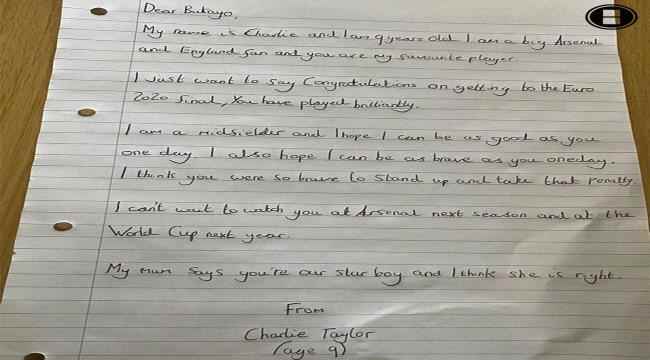 Dear Bukayo,
My name is Charlie and I am 9 years old. I am a big Arsenal
and England fan and you are my favourite player.
I just want to say Congratulations on getting to the Euro
2020 final, You have played brilliantly.
I am a midfielder and I hope I can be as good as you
one day. I also hope I can be as brave as you one day.
I think you were so brave to stand up and take that penalty.
I can't wait to watch you at Arsenal next season and at the
World Cup next year.
My mum says you're our star boy and I think she is right.
From
Charlie Taylor
(age 9)